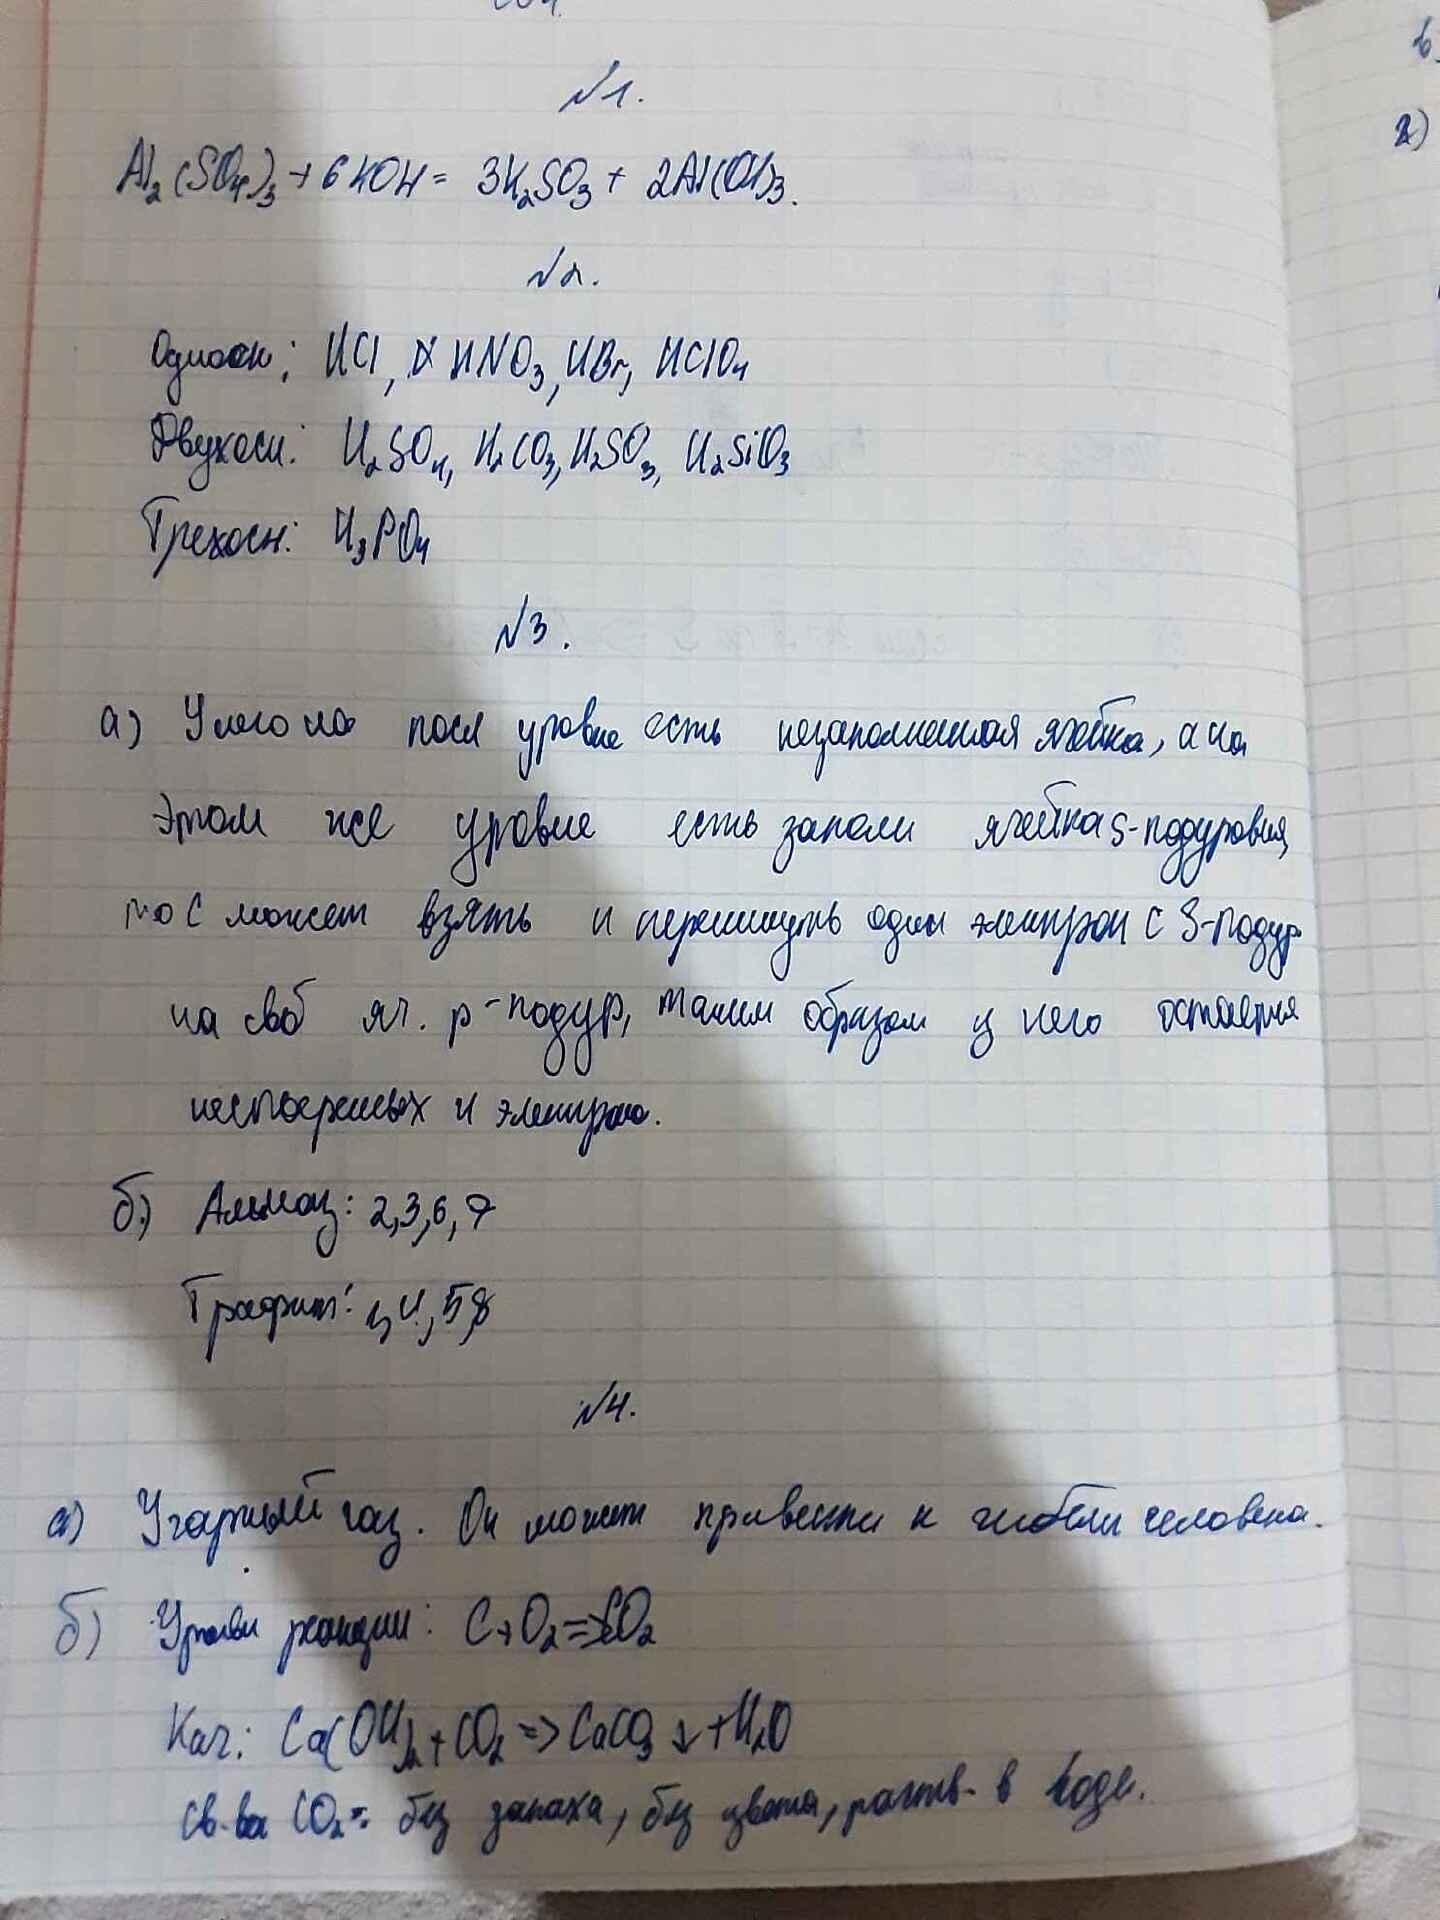 №1.
Al₂(SO₄)₃ + 6KOH = 3K₂SO₃ + 2Al(OH)₃.
№2.
Одноосн: HCl, HNO₃, HBr, HClO₄
Двухосн: H₂SO₄, H₂CO₃, H₂SO₃, H₂SiO₃
Трехосн: H₃PO₄
№3.
а) У него на посл уровне есть незаполненная ячейка, а на
этом же уровне есть заполн ячейка S-подуровня,
то C может взять и перекинуть один электрон с S-подур
на своб яч. p-подур, таким образом у него остаётся
неспаренных 4 электрона.
б) Алмаз: 2,3,6,7
Графит: 1,4,5,8
№4.
а) Угарный газ. Он может привести к гибели человека.
б) реакции: C + O₂ => CO₂
Кач: Ca(OH)₂ + CO₂ => CaCO₃ ↓ + H₂O
св-ва CO₂ = без запаха, без цвета, раств. в воде.